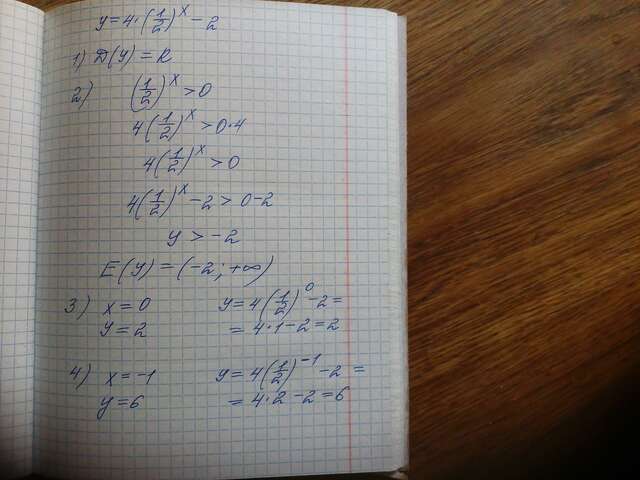 y=4·(1/2)^x −2
1) D(y)=R
2) (1/2)^x >0
4(1/2)^x >0·4
4(1/2)^x >0
4(1/2)^x −2> 0−2
y >−2
E(y)=(−2; +∞)
3) x=0 y=4(1/2)^0 −2=
y=2 =4·1−2=2
4) x=−1 y=4(1/2)^−1 −2 =
y=6 =4·2−2=6